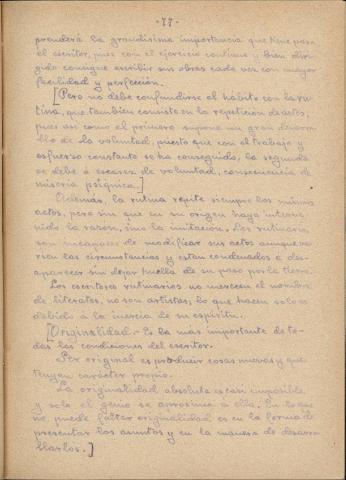 - 77 -
prenderá la grandísima importancia que tiene para
el escritor, pues con el ejercicio continuo y bien diri-
gido consigue escribir sus obras cada vez con mayor
facilidad y perfección.
[Pero no debe confundirse el hábito con la ru-
tina, que también consiste en la repetición de actos,
pues así como el primero supone un gran desarro-
llo de la voluntad, puesto que con el trabajo y
esfuerzo constante se ha conseguido, la segunda
se debe á escasez de voluntad, consecuencia de
miseria psíquica.]
Además, la rutina repite siempre los mismos
actos, pero sin que en su origen haya interve-
nido la razón, sino la imitación. Los rutinarios
son incapaces de modificar sus actos aunque va-
rien las circunstancias y están condenados á des-
aparecer sin dejar huella de su paso por la tierra.
Los escritores rutinarios no merecen el nombre
de literatos, no son artistas; lo que hacen solo es
debido á la inercia de su espíritu.
[Originalidad.- Es la más importante de to-
das las condiciones del escritor.
Ser original es producir cosas nuevas y que
tengan carácter propio.
La originalidad absoluta es casi imposible
y solo el genio se aproxima á ella. En lo que
no puede faltar originalidad es en la forma de
presentar los asuntos y en la manera de desarro-
llarlos.]